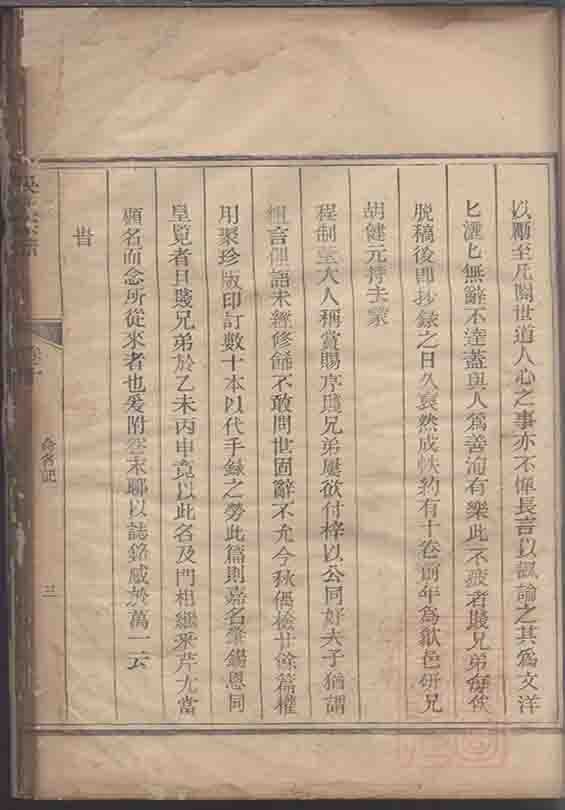 以勵至凡關世道人心之事亦不憚長言以諷諭之其為文洋
匕灑匕無辭不達蓋與人為善洵有樂此不疲者賤兄弟每俟
脫稿後即抄錄之日久裒然成帙約有十卷前年為歙邑研兄
胡健元持去蒙
程制臺大人稱賞賜序賤兄弟屢欲付梓以公同好夫子猶謂
俚語未經修飾不敢問世固辭不允今秋偶檢廿餘篇權
用聚珍版印訂數十本以代手錄之勞此篇則嘉名肇錫恩同
皇覽者且賤兄弟於乙未丙申竟以此名及門相繼釆芹尤當
顧名而念所從來者也爰附卷末聊以誌銘感於萬一云
命名記
三